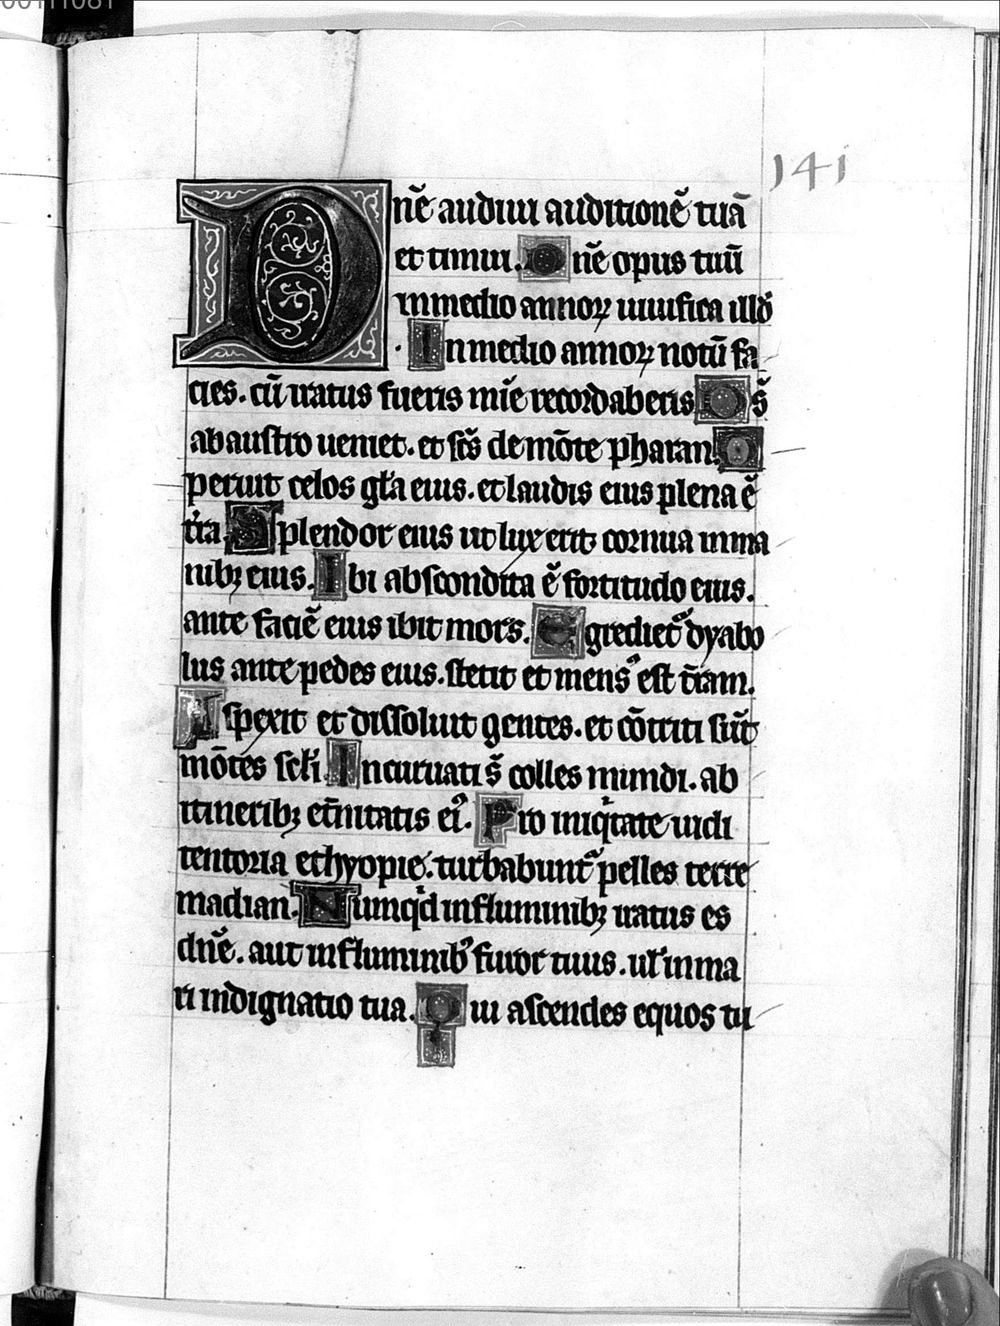 00111081
141
Dñe audiui auditionẽ tuã
et timui. Dñe opus tuũ
in medio annoꝝ uiuifica illð
In medio annoꝝ notũ fa
cies. cũ iratus fueris mĩe recordaberis Ds̃
ab austro ueniet. et sc̃s de mõte pharan. O
peruit celos gl̃a eius. et laudis eius plena ẽ
t̃ra. Splendor eius ut lux erit cornua in ma
nibꝫ eius. Ibi abscondita ẽ fortitudo eius.
ante faciẽ eius ibit mors. Egrediet᷑ dyabo
lus ante pedes eius. stetit et mens᷒ est t̃ram.
Aspexit et dissoluit gentes. et cõtriti sũt
mõtes scl̃i. Incuruati s̃ colles mundi. ab
itineribꝫ et̃nitatis ei᷒. Pro iniqͥtate uidi
tentoria ethyopie. turbabunt᷑ pelles terre
madian. Numqͥd in fluminibꝫ iratus es
dñe. aut in fluminib᷒ furor tuus. ul̃ in ma
ri indignatio tua. Qui ascendes equos tu